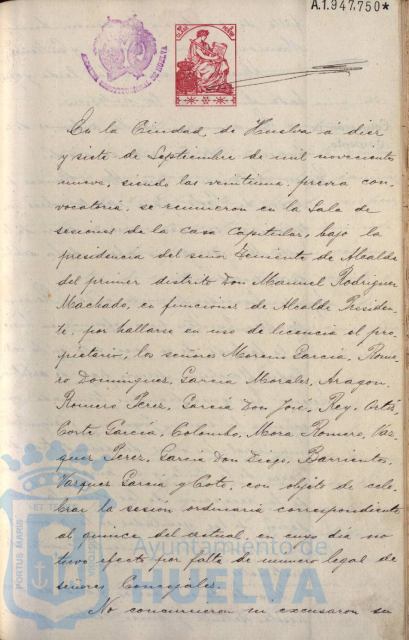 A.1.947,750*
En la Ciudad, de Huelva á diez
y siete de Septiembre de mil novecientos
nueve, siendo las veintiuna, previa con-
vocatoria, se reunieron en la Sala de
sesiones de la casa Capitular, bajo la
presidencia del señor Teniente de Alcalde
del primer distrito Don Manuel Rodriguez
Machado, en funciones de Alcalde Presiden-
te, por hallarse en uso de licencia el pro-
pietario, los señores Moreno Garcia, Rome-
ro Dominguez, Garcia Morales, Aragon,
Romero Perez, Garcia Don José, Rey, Ortiz,
Corte Garcia, Colombo, Mora Romero, Vaz-
quez Perez, Garcia Don Diego, Barrientos,
Vazquez Garcia y Coto, con objeto de cele-
brar la sesión ordinaria correspondiente
al quince del actual, en cuyo dia no
tuvo efecto por falta de numero legal de
señores Concejales.
No concurrieron ni excusaron su
PORTUS MARIS
Ayuntamiento de
HUELVA